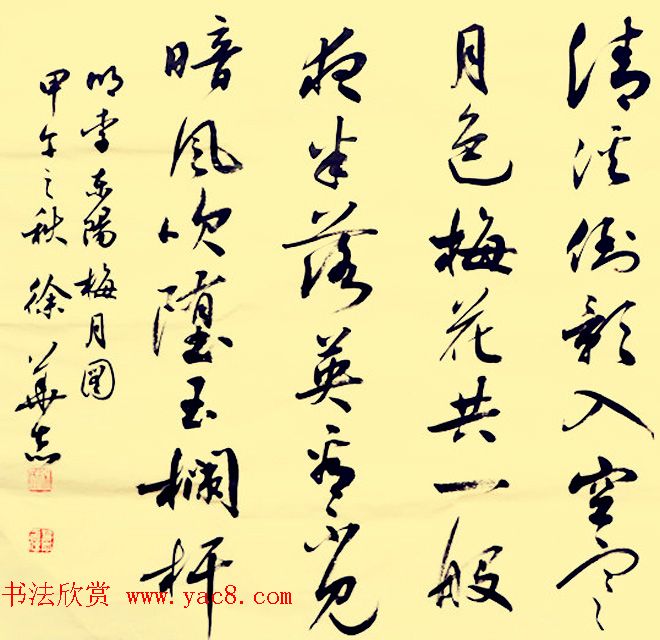 清溪倒影入空寒
月色梅花共一般
夜半落英看不见
暗风吹堕玉栏杆
明李东阳梅月图
甲午之秋 徐华志
书法欣赏 www.yac8.com